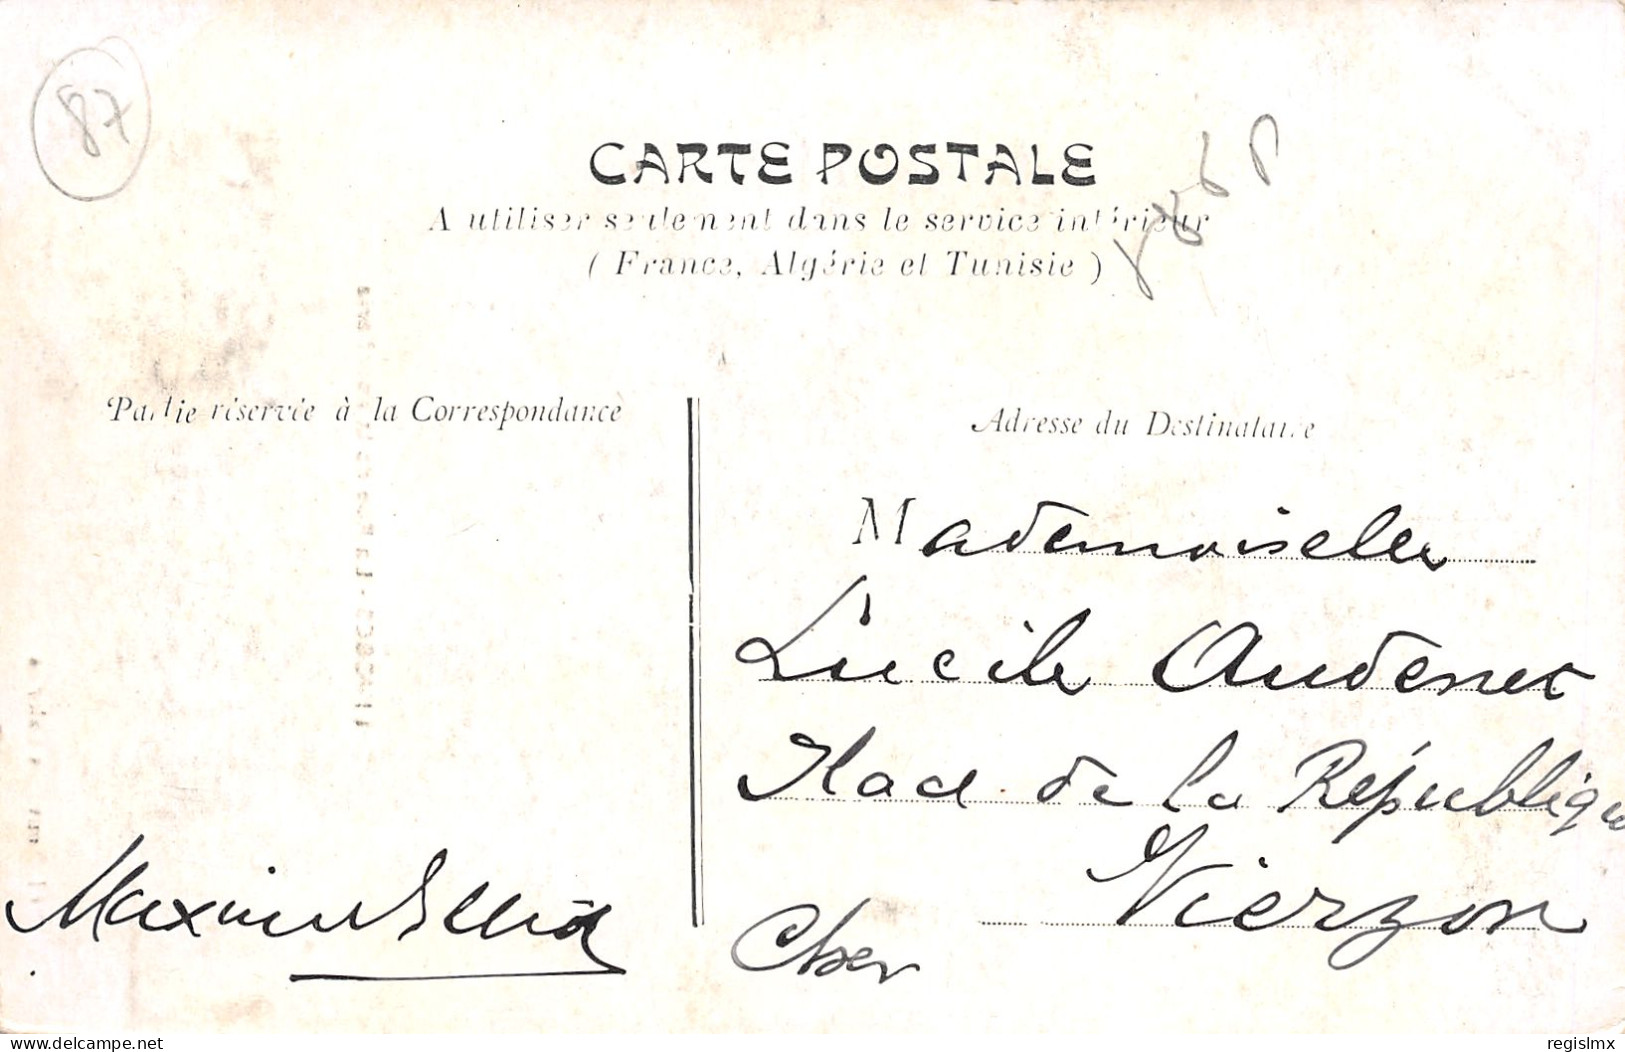 87
CARTE POSTALE
A utiliser seulement dans le service intérieur
( France, Algérie et Tunisie )
Partie réservée à la Correspondance
Adresse du Destinataire
Mademoiselle
Lucile Audenet
Place de la République
Vierzon
Cher
Maxime
www.delcampe.net
regislmx